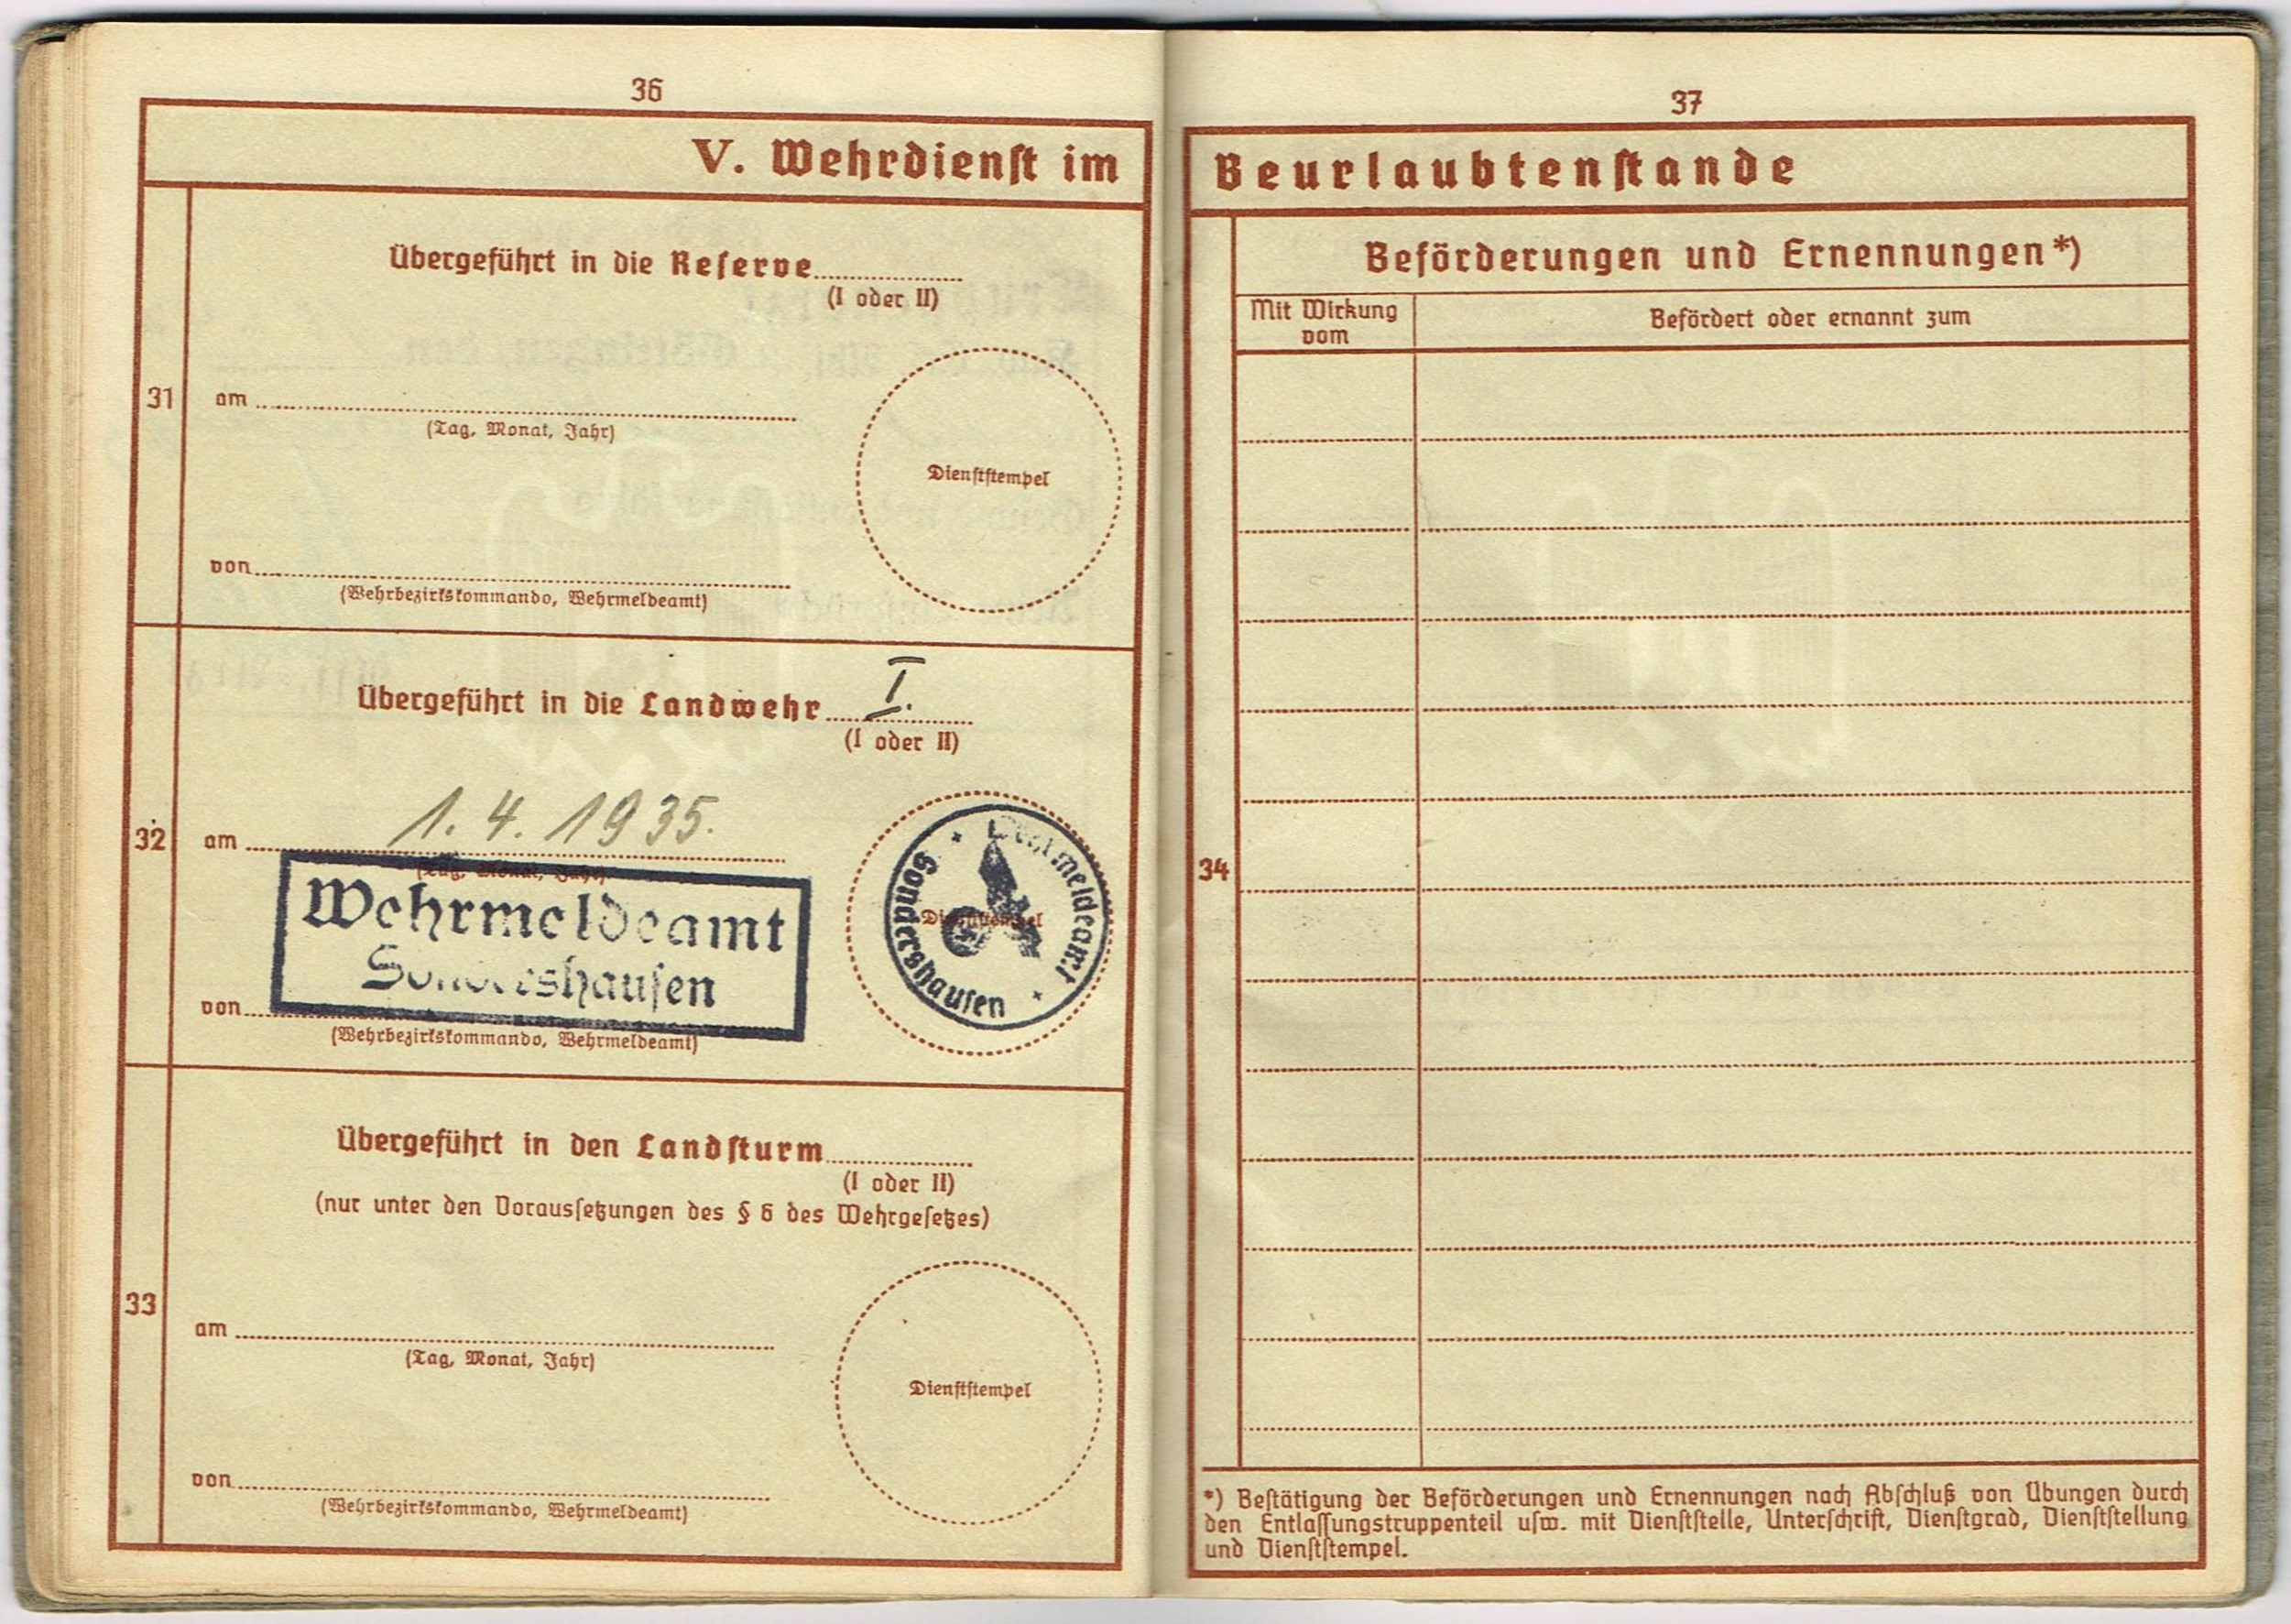 36
V. Wehrdienſt im
Übergeführt in die Reſerve
(I oder II)
31
am
(Tag, Monat, Jahr)
Dienſtſtempel
von
(Wehrbezirkskommando, Wehrmeldeamt)
Übergeführt in die Landwehr I.
(I oder II)
32
am 1. 4. 1935.
(Tag, Monat, Jahr)
Wehrmeldeamt
Sondershauſen
Dienſtſtempel
Wehrmeldeamt
Sondershauſen
von
(Wehrbezirkskommando, Wehrmeldeamt)
Übergeführt in den Landſturm
(I oder II)
(nur unter den Vorausſetzungen des § 6 des Wehrgeſetzes)
33
am
(Tag, Monat, Jahr)
Dienſtſtempel
von
(Wehrbezirkskommando, Wehrmeldeamt)
37
Beurlaubtenſtande
Beförderungen und Ernennungen*)
Mit Wirkung
vom
Befördert oder ernannt zum
34
*) Beſtätigung der Beförderungen und Ernennungen nach Abſchluß von Übungen durch
den Entlaſſungstruppenteil uſw. mit Dienſtſtelle, Unterſchrift, Dienſtgrad, Dienſtſtellung
und Dienſtſtempel.